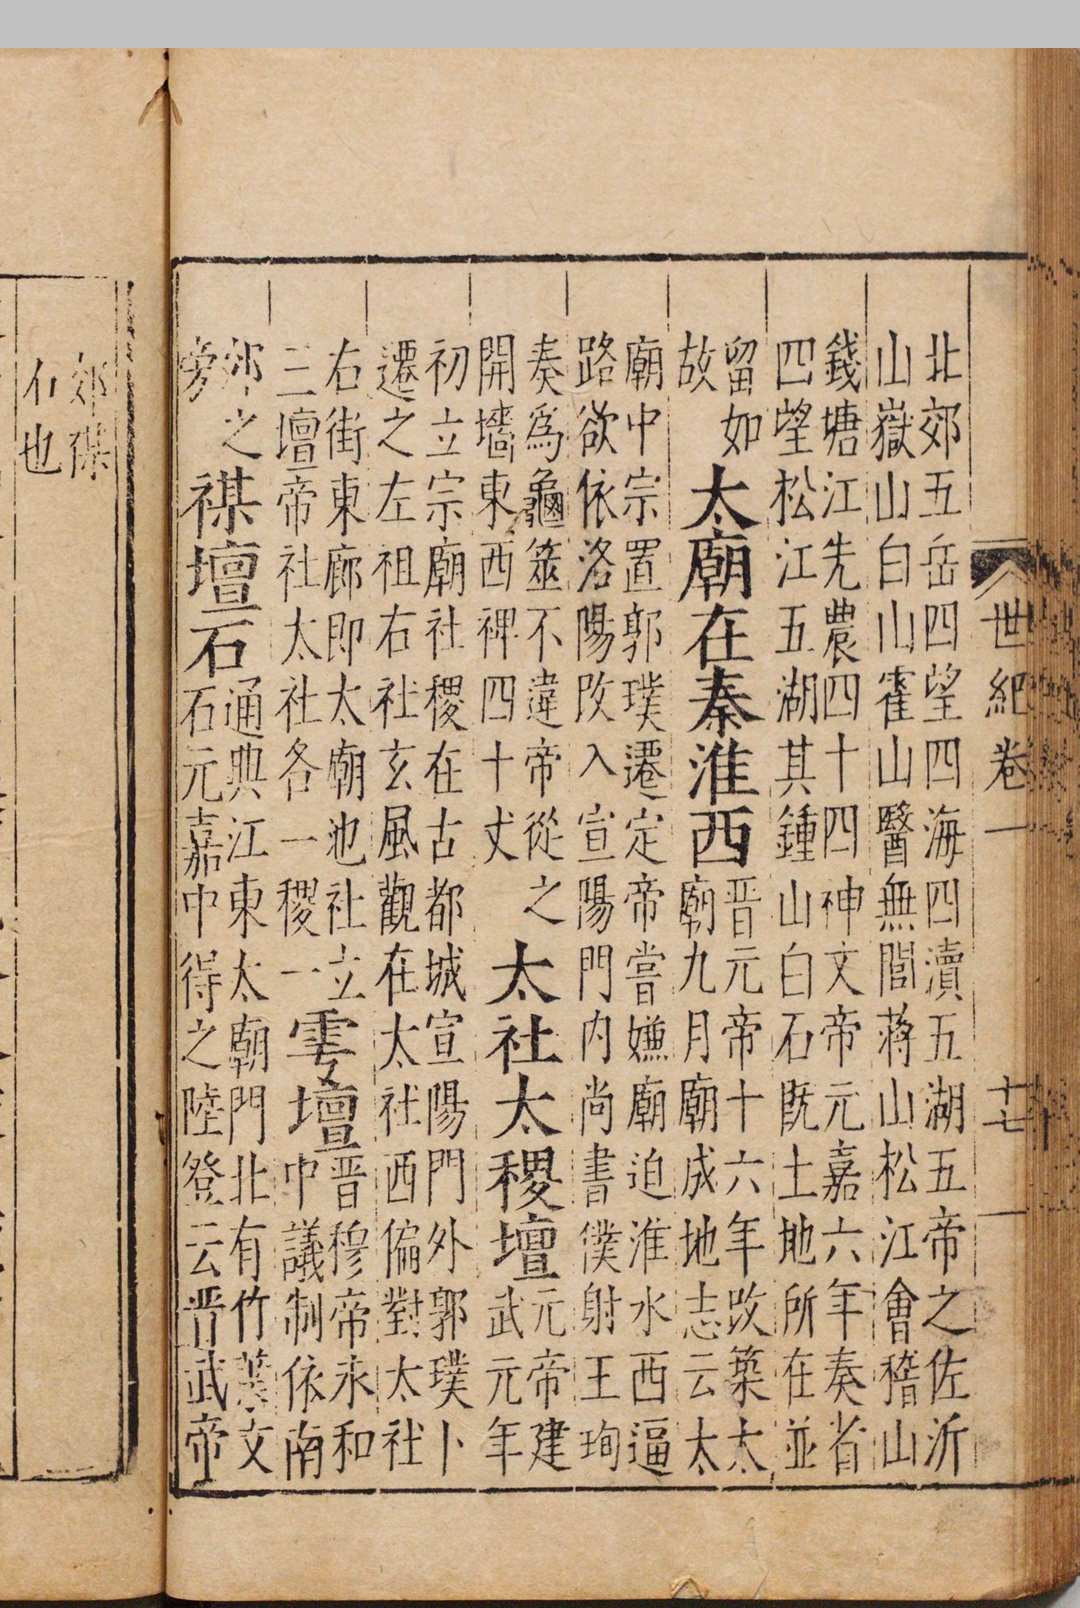 世紀卷一
十七
北郊五岳四望四海四瀆五湖五帝之佐沂
山嶽山白山霍山醫無閭蔣山松江會稽山
錢塘江先農四十四神文帝元嘉六年奏省
四望松江五湖其鍾山白石既土地所在並
留如
故
太廟在秦淮西
晉元帝十六年改築太
廟九月廟成地志云太
廟中宗置郭璞遷定帝嘗嫌廟迫淮水西逼
路欲依洛陽改入宣陽門内尚書僕射王珣
奏爲龜筮不違帝從之
開墻東西裨四十丈
太社太稷壇
元帝建
武元年
初立宗廟社稷在古都城宣陽門外郭璞卜
遷之左祖右社玄風觀在太社西偏對太社
右街東廊即太廟也社立
三壇帝社太社各一稷一
雩壇
晉穆帝永和
中議制依南
郊之
旁
禖壇石
通典江東太廟門北有竹文
石元嘉中得之陸登云晉武帝
郊禖
石也